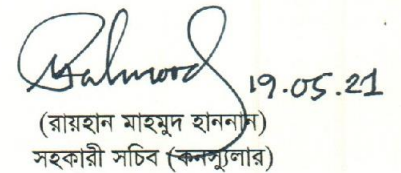 Mahmood 19.05.21
(রায়হান মাহমুদ হাননান)
সহকারী সচিব (কনস্যুলার)